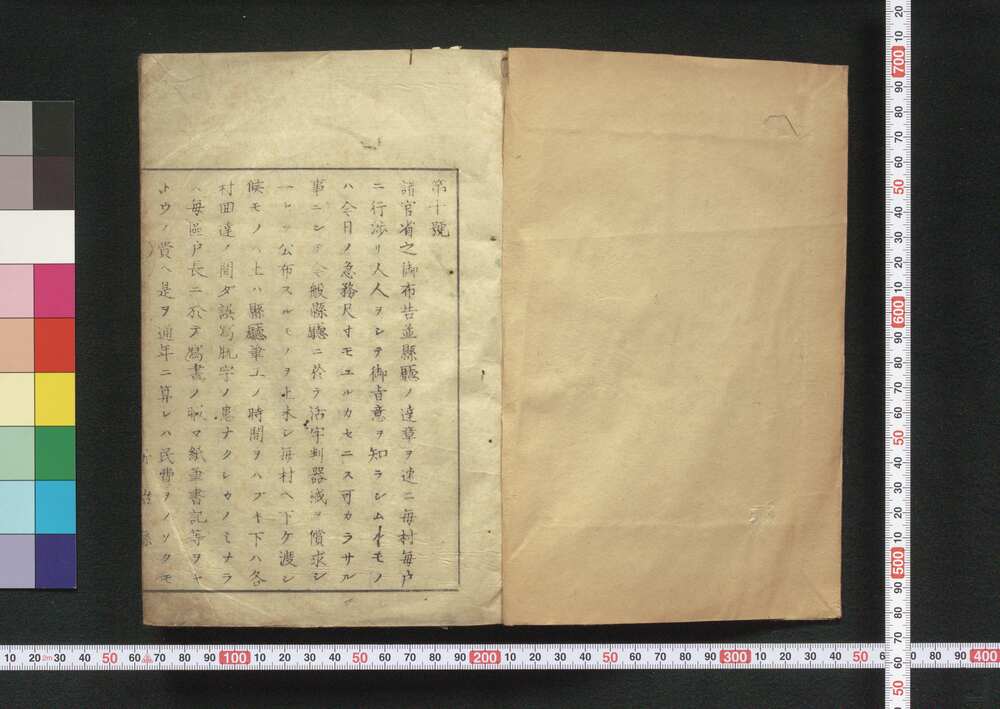 第十號
諸官省之御布告並縣廳ノ達章ヲ速ニ毎村毎戸
ニ行渉リ人人ヲシテ御旨意ヲ知ラシムルモノ
ハ今日ノ急務尺寸モユルカセニス可カラサル
事ニシテ今般縣廳ニ於テ活字判器械ヲ償求シ
一ヒツ公布スルモノヲ上木シ毎村ヘ下ケ渡シ
候モノハ上ハ縣廳筆工ノ時間ヲハブキ下ハ各
村回達ノ間ダ誤寫脱字ノ患ナクシカノミナラ
ハ毎區戸長ニ於テ寫書ノ暇マ紙筆書記等ヲヤ
トウノ費ヘ是ヲ通年ニ算シハ民費ヲノゾクモ